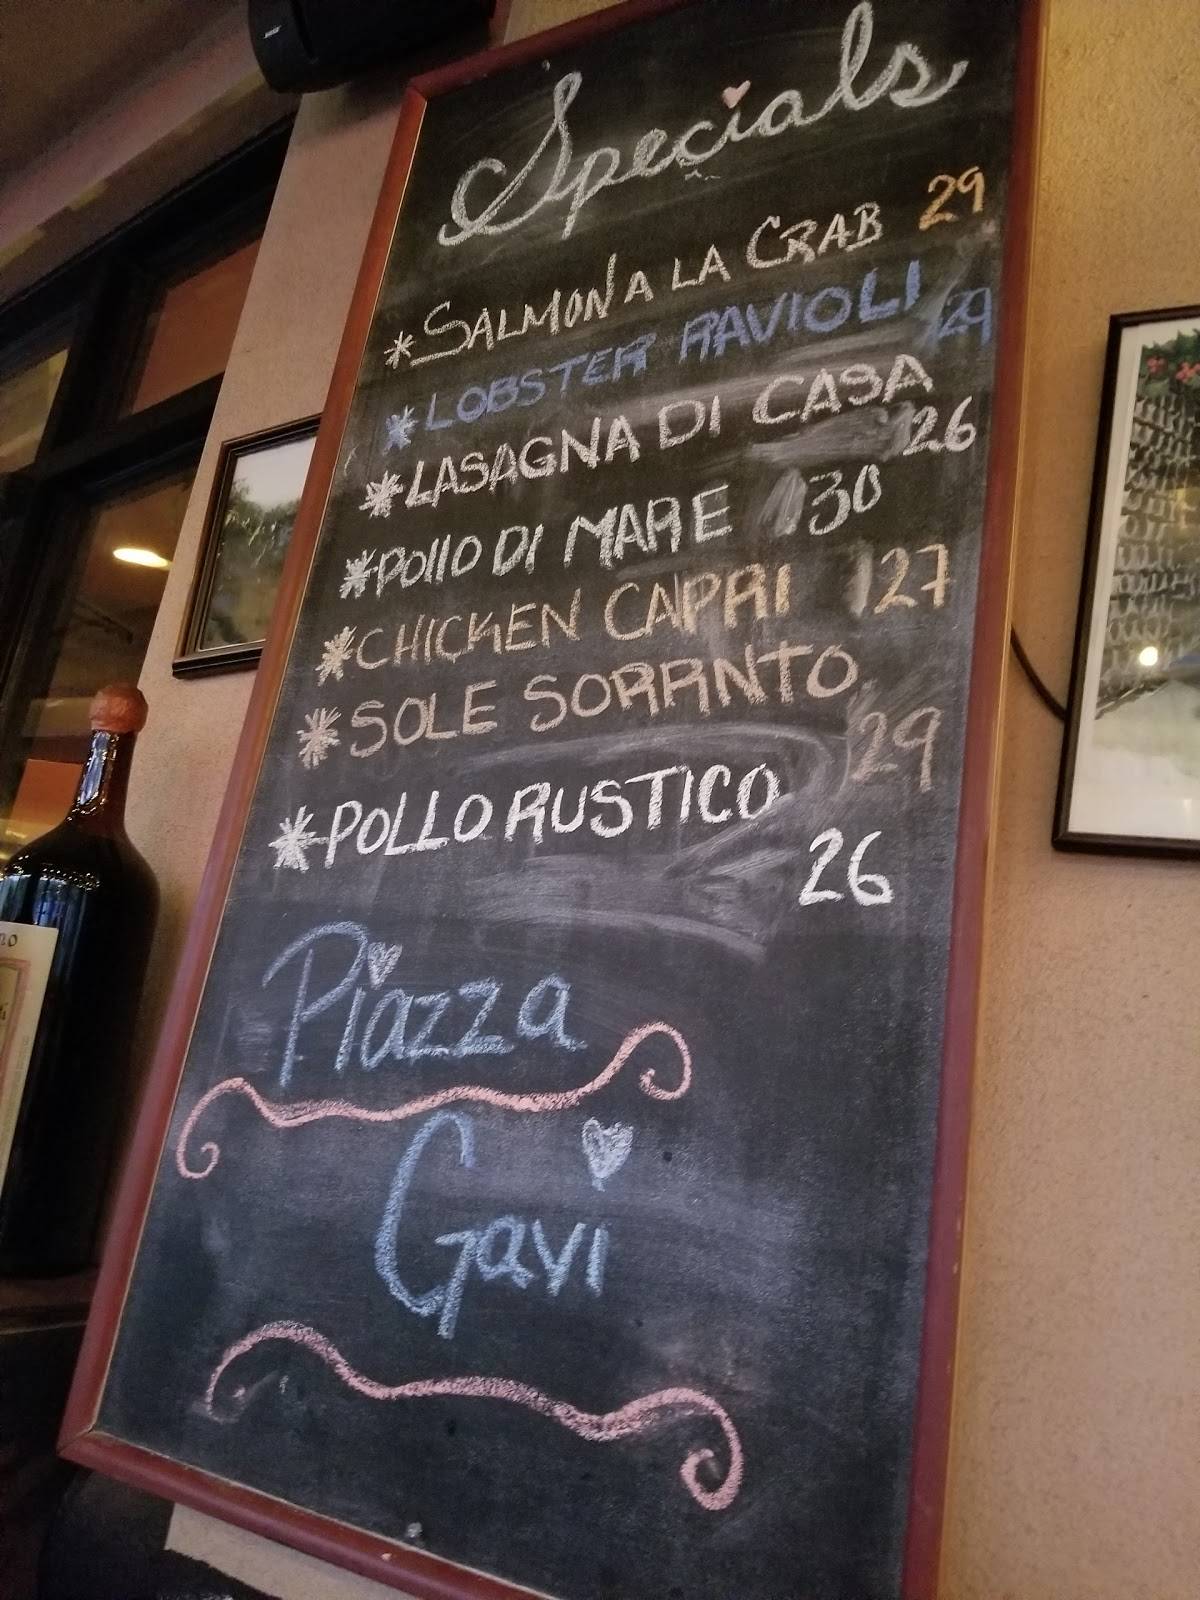 Specials
*SALMON A LA CRAB 29
*LOBSTER RAVIOLI 29
*LASAGNA DI CASA 26
*POllO DI MARE 30
*CHICKEN CAPRI 27
*SOLE SORRNTO 29
*POLLO RUSTICO 26
Piazza
Gavi